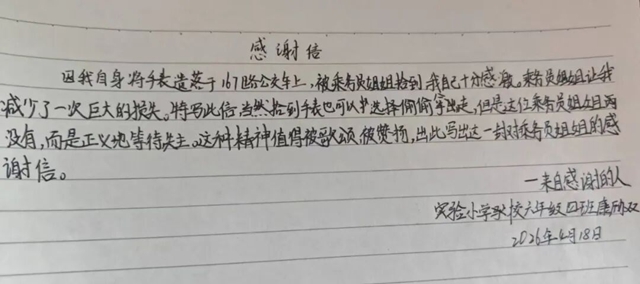 感谢信
因我自身将手表遗落于167路公交车上,被乘务员姐姐拾到我自己十分感激。乘务员姐姐让我
减少了一次巨大的损失。特写此信,当然拾到手表也可以选择偷偷拿出走,但是这位乘务员姐姐两
没有,而是正义地等待失主。这种精神值得被歌颂,被赞扬,出此写出这一封对乘务员姐姐的感
谢信。
一来自感谢的人
实验小学 校六年级四班康
2026年4月18日